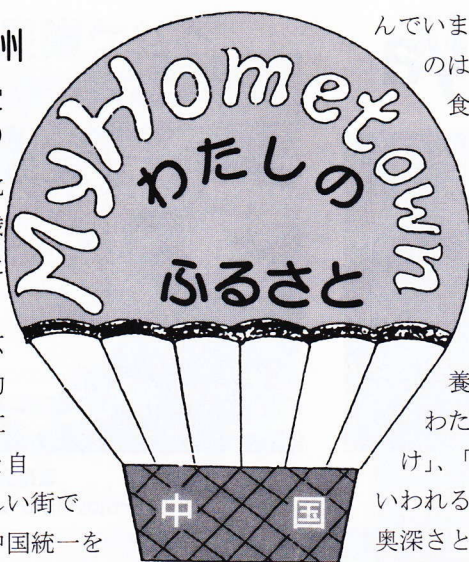 My Hometown
わたしの
ふるさと
中 国
州
自
しい街で
中国統一を
んでいま
のは
食
養
わた
け」、「
いわれる
奥深さと